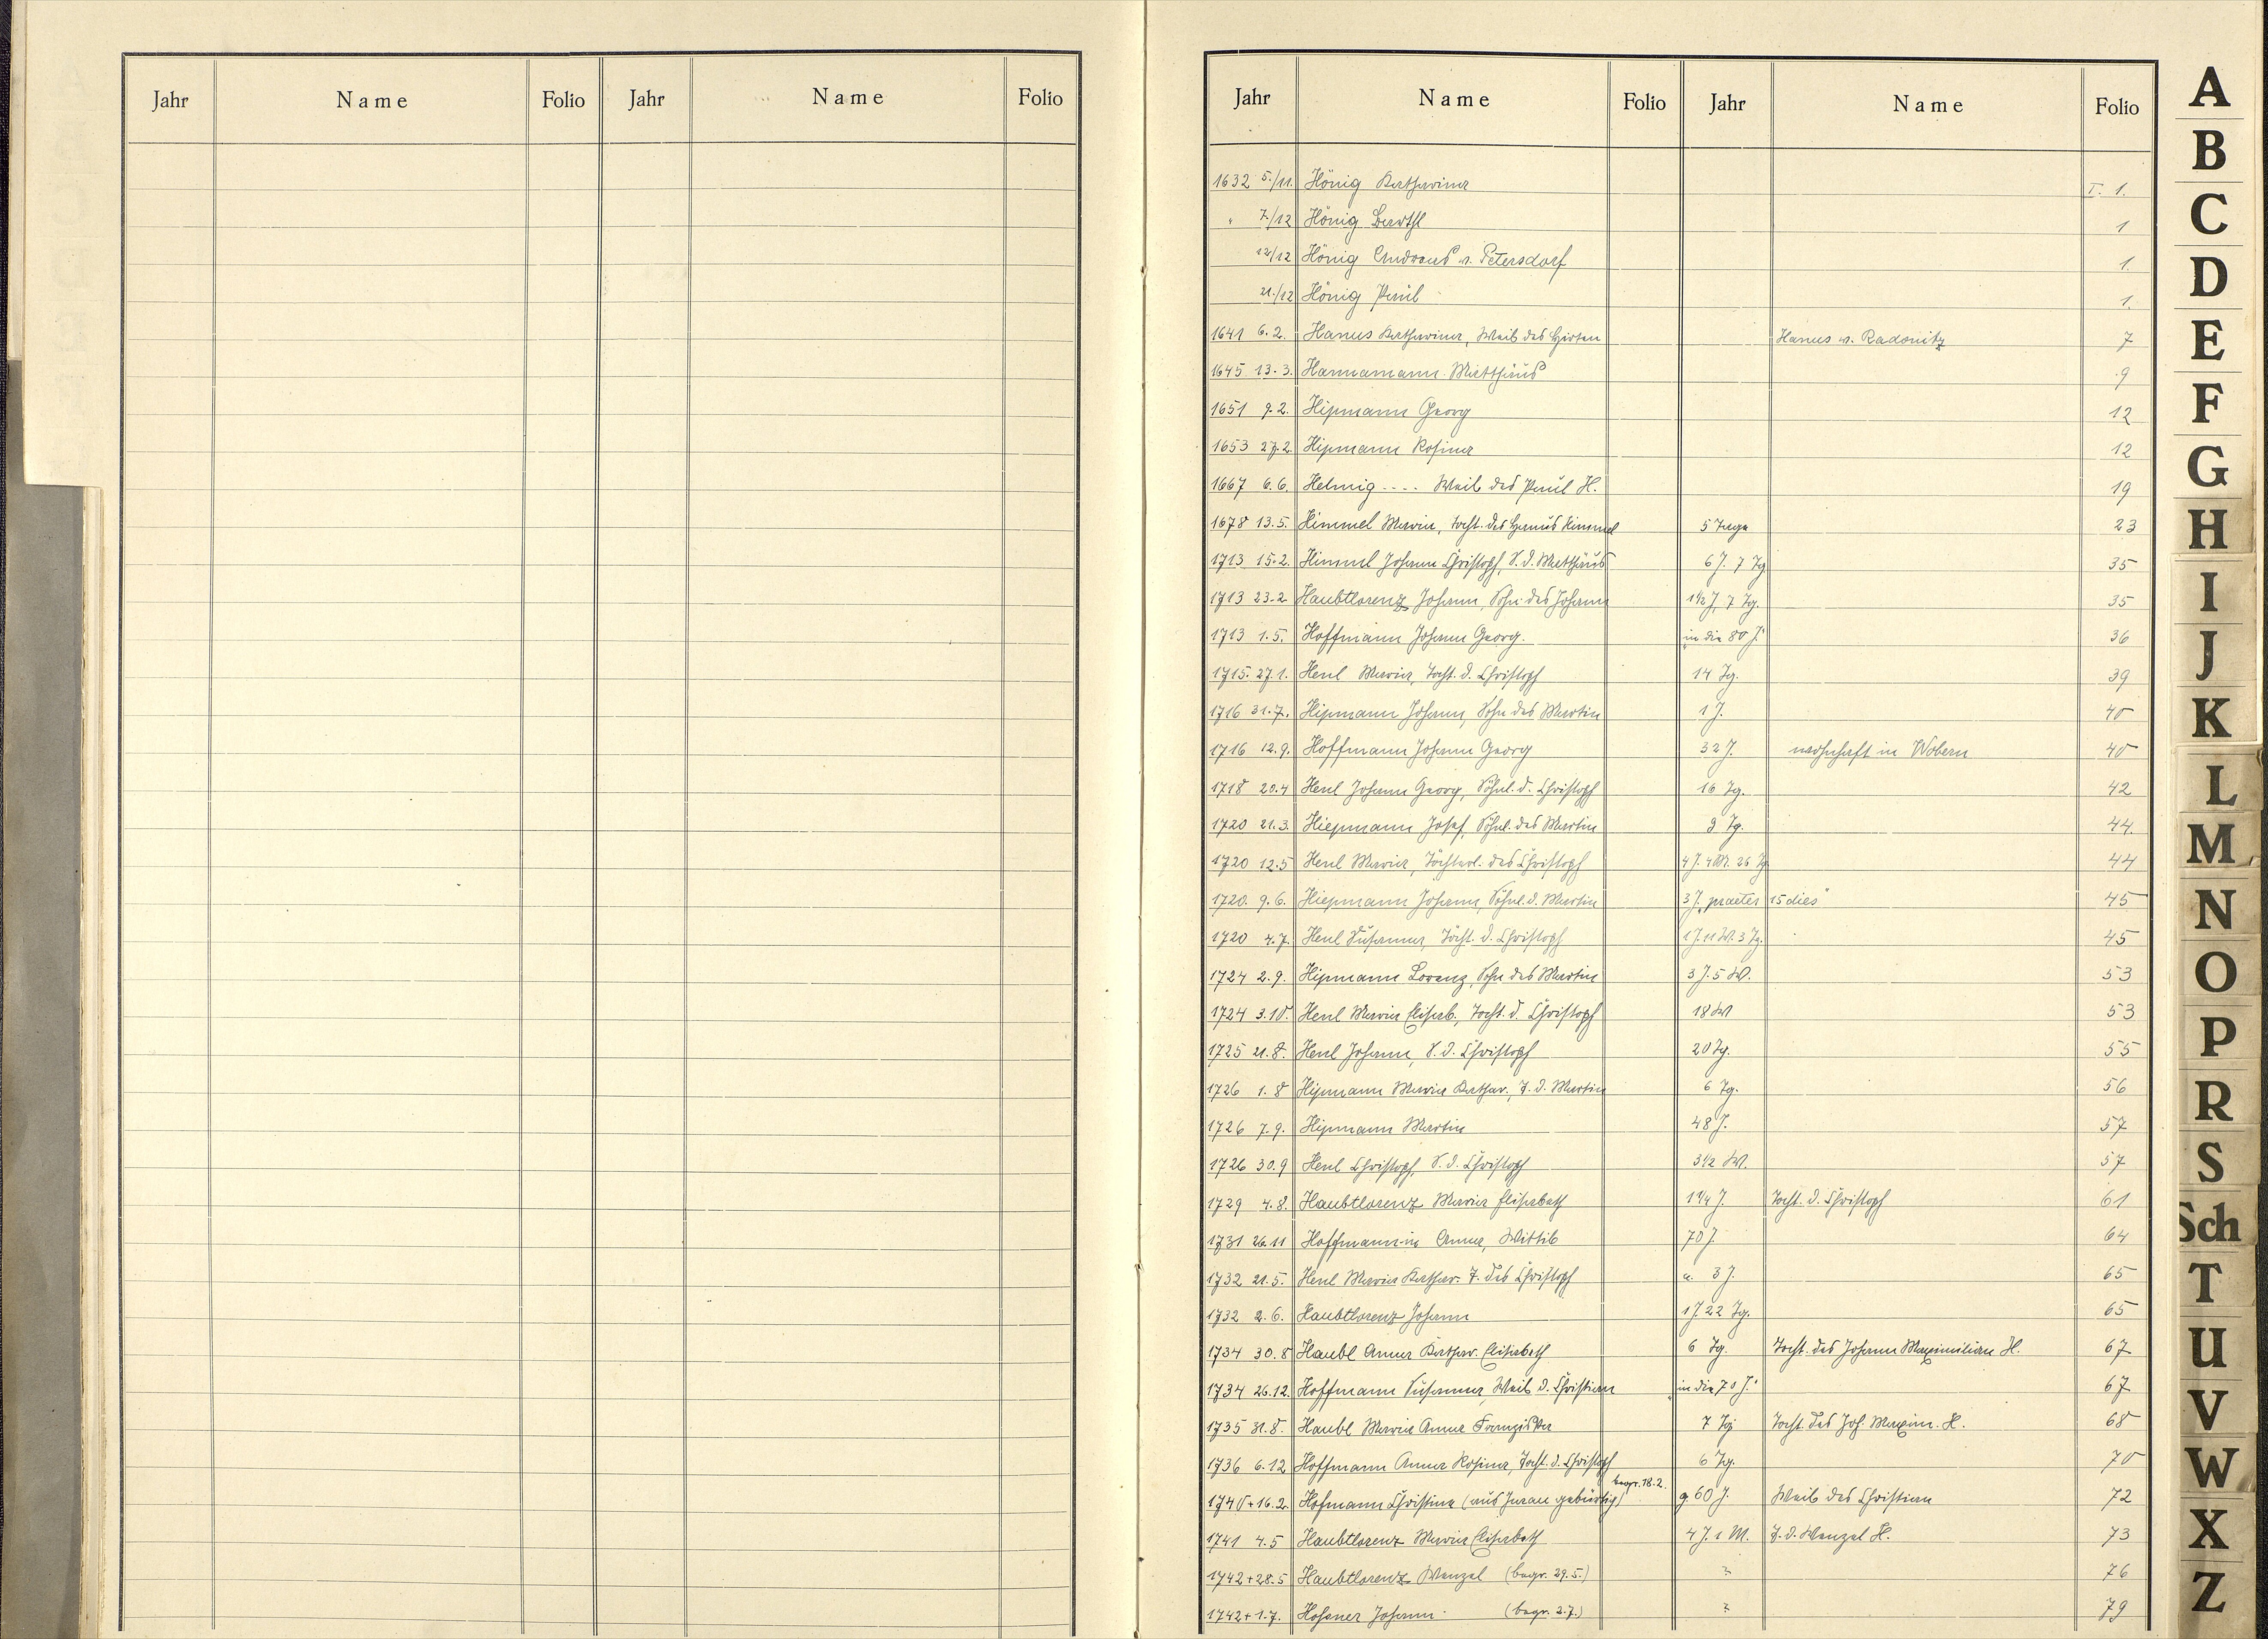 Jahr Name Folio Jahr Name Folio
Jahr Name Folio Jahr Name Folio
1632 5./11. Hönig Katharina I. 1.
" 7./12 Hönig Barthl 1
12/12 Hönig Andreas v. Petersdorf 1.
21./12 Hönig Paul 1.
1641 6.2. Hanus Katharina, Weib des Hirten Hanus v. Radonitz 7
1645 13.3. Hannamann Matthäus 9
1651 9.2. Hipmann Georg 12
1653 27.2. Hipmann Rosina 12
1667 6.6. Helmig .... Weib des Paul H. 19
1678 13.5. Himmel Maria, Tocht. des Hanus Himmel 5 Tage 23
1713 15.2. Himml Johann Christoph, S. d. Matthäus 6 J. 7 Tg 35
1713 23.2 Haubtlorenz Johann, Sohn des Johann 1½ J. 7 Tg. 35
1713 1.5. Hoffmann Johann Georg. "in die 80 J." 36
1715. 27.1. Henl Maria, Tocht. d. Christoph 14 Tg. 39
1716 31.7. Hipmann Johann, Sohn des Martin 1 J. 40
1716 12.9. Hoffmann Johann Georg 32 J. wohnhaft in Wobern 40
1718 20.4 Henl Johann Georg, Söhnl. d. Christoph 16 Tg. 42
1720 21.3. Hiepmann Josef, Söhnl. des Martin 9 Tg. 44.
1720 12.5 Henl Maria, Töchterl. des Christoph 4 J. 4 M. 26 Tg 44
1720. 9.6. Hiepmann Johann, Söhnl. d. Martin 3 J. "praeter 15 dies" 45
1720 4.7. Henl Susanna, Töcht. d. Christoph 1 J. 11 W. 3 Tg. 45
1724 2.9. Hipmann Lorenz, Sohn des Martin 3 J. 5 W. 53
1724 3.10. Henl Maria Elisab., Tocht. d. Christoph 18 W 53
1725 21.8. Henl Johann, S. d. Christoph 20 Tg. 55
1726 1.8 Hipmann Maria Kathar., T. d. Martin 6 Tg. 56
1726 7.9. Hipmann Martin 48 J. 57
1726 30.9 Henl Christoph, S. d. Christoph 3½ W. 57
1729 4.8. Haubtlorenz Maria Elisabeth 1¼ J. Tocht. d. Christoph 61
1731 26.11 Hoffmann-in Anna, Wittib 70 J. 64
1732 21.5. Henl Maria Kathar. T. des Christoph a. 3 J. 65
1732 2.6. Haubtlorenz Johann 1 J. 22 Tg. 65
1734 30.8 Haubl Anna Kathar. Elisabeth 6 Tg. Tocht. des Johann Maximilian H. 67
1734 26.12. Hoffmann Susanna, Weib d. Christian "in die 70 J." 67
1735 31.8. Haubl Maria Anna Franziska 7 Tg Tocht. des Joh. Maxim. H. 68
1736 6.12 Hoffmann Anna Rosina, Tocht. d. Christoph 6 Tg. 70
1740 + 16.2. Hofmann Christina (aus Jurau gebürtig) begr. 18.2. g. 60 J. Weib des Christian 72
1741 4.5 Haubtlorenz Maria Elisabeth 4 J. 1 M. T. d. Wenzel H. 73
1742 + 28.5 Haubtlorenz Wenzel (begr. 29.5.) ? 76
1742 + 1.7. Hossner Johann (begr. 2.7.) ? 79
A
B
C
D
E
F
G
H
I
J
K
L
M
N
O
P
R
S
Sch
T
U
V
W
X
Z